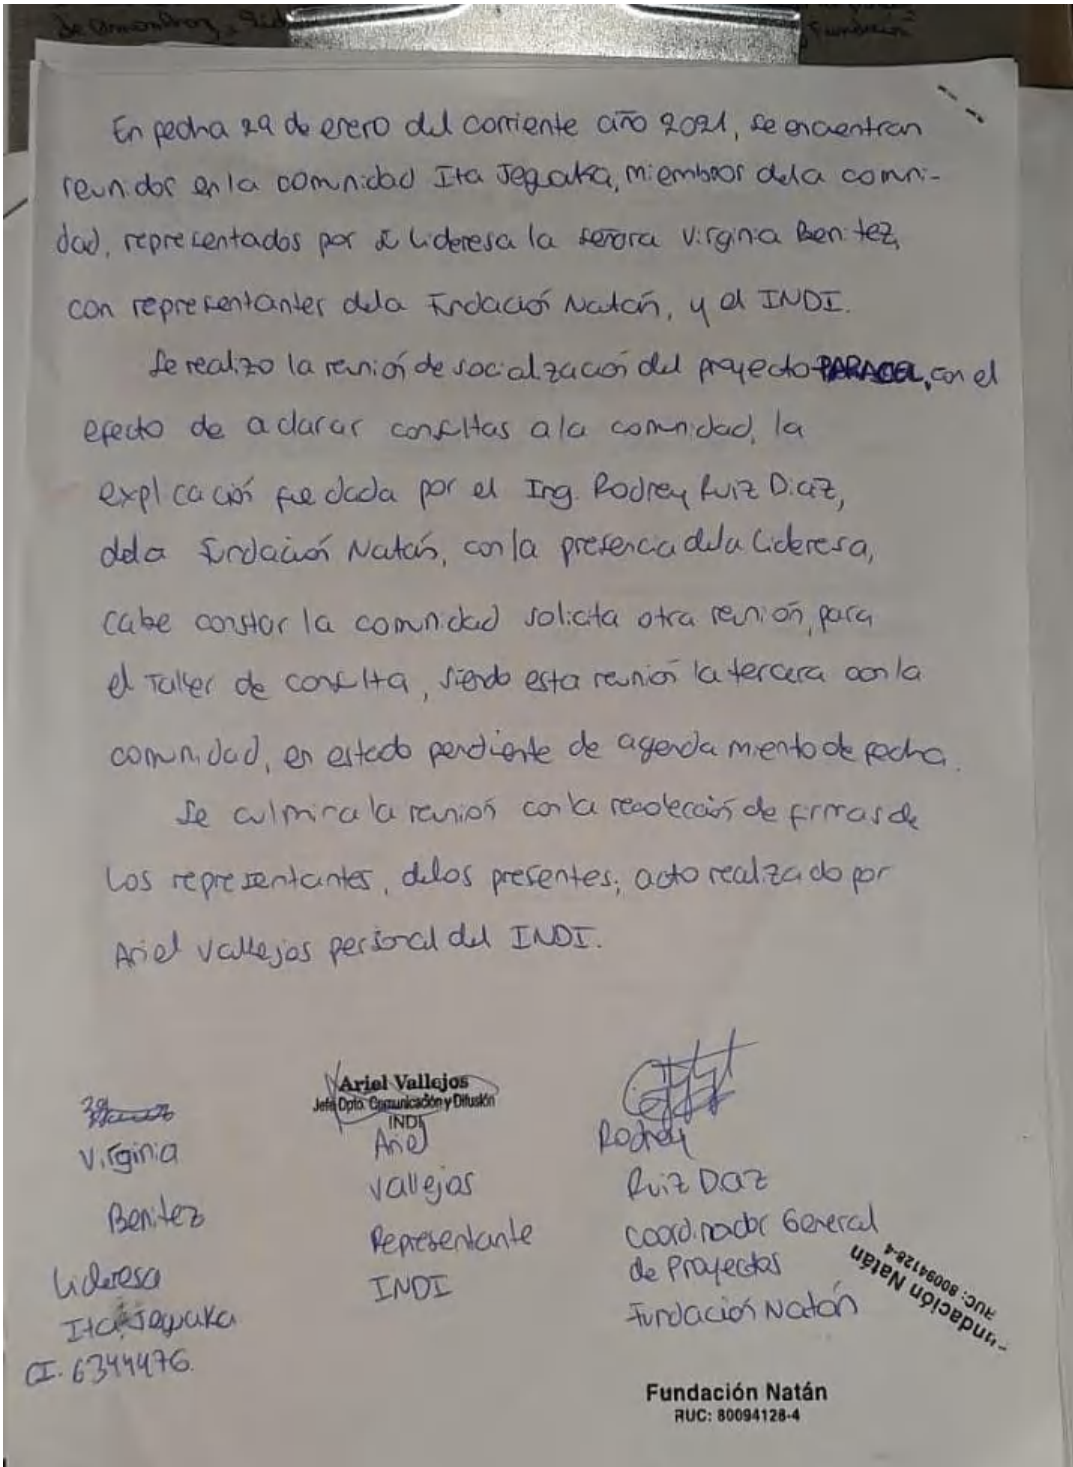 Fundación
En fecha 29 de enero del corriente año 2021, se encuentran
reunidos en la comunidad Ita Jeguaka, miembros dela comni-
dad, representados por lideresa la señora Virginia Benitez,
con representantes dela Fundación Natán, y el INDI.
Se realizo la reunión de socialización del proyecto PARACEL, con el
efecto de aclarar consultas ala comunidad, la
explicación fue dada por el Ing. Rodney Ruiz Diaz,
dela Fundación Natán, con la presencia dela Lideresa,
cabe constar la comunidad solicita otra reunión, para
el Taller de consulta, siendo esta reunión la tercera con la
comunidad, en estado pendiente de agenda miento de fecha.
Se culmina la reunión con la recolección de firmas de
los representantes, delos presentes; acto realizado por
Ariel Vallejos personal del INDI.
Virginia
Benitez
Lideresa
Ita Jeguaka
CI. 6344476.
Ariel Vallejos
Jefe Dpto. Comunicación y Difusión
INDI
Ariel
Vallejos
Representante
INDI
Rodney
Ruiz Diaz
Coordinador General
de Proyectos
Fundación Natán
Fundación Natán
RUC: 80094128-4
Fundación Natán
RUC: 80094128-4